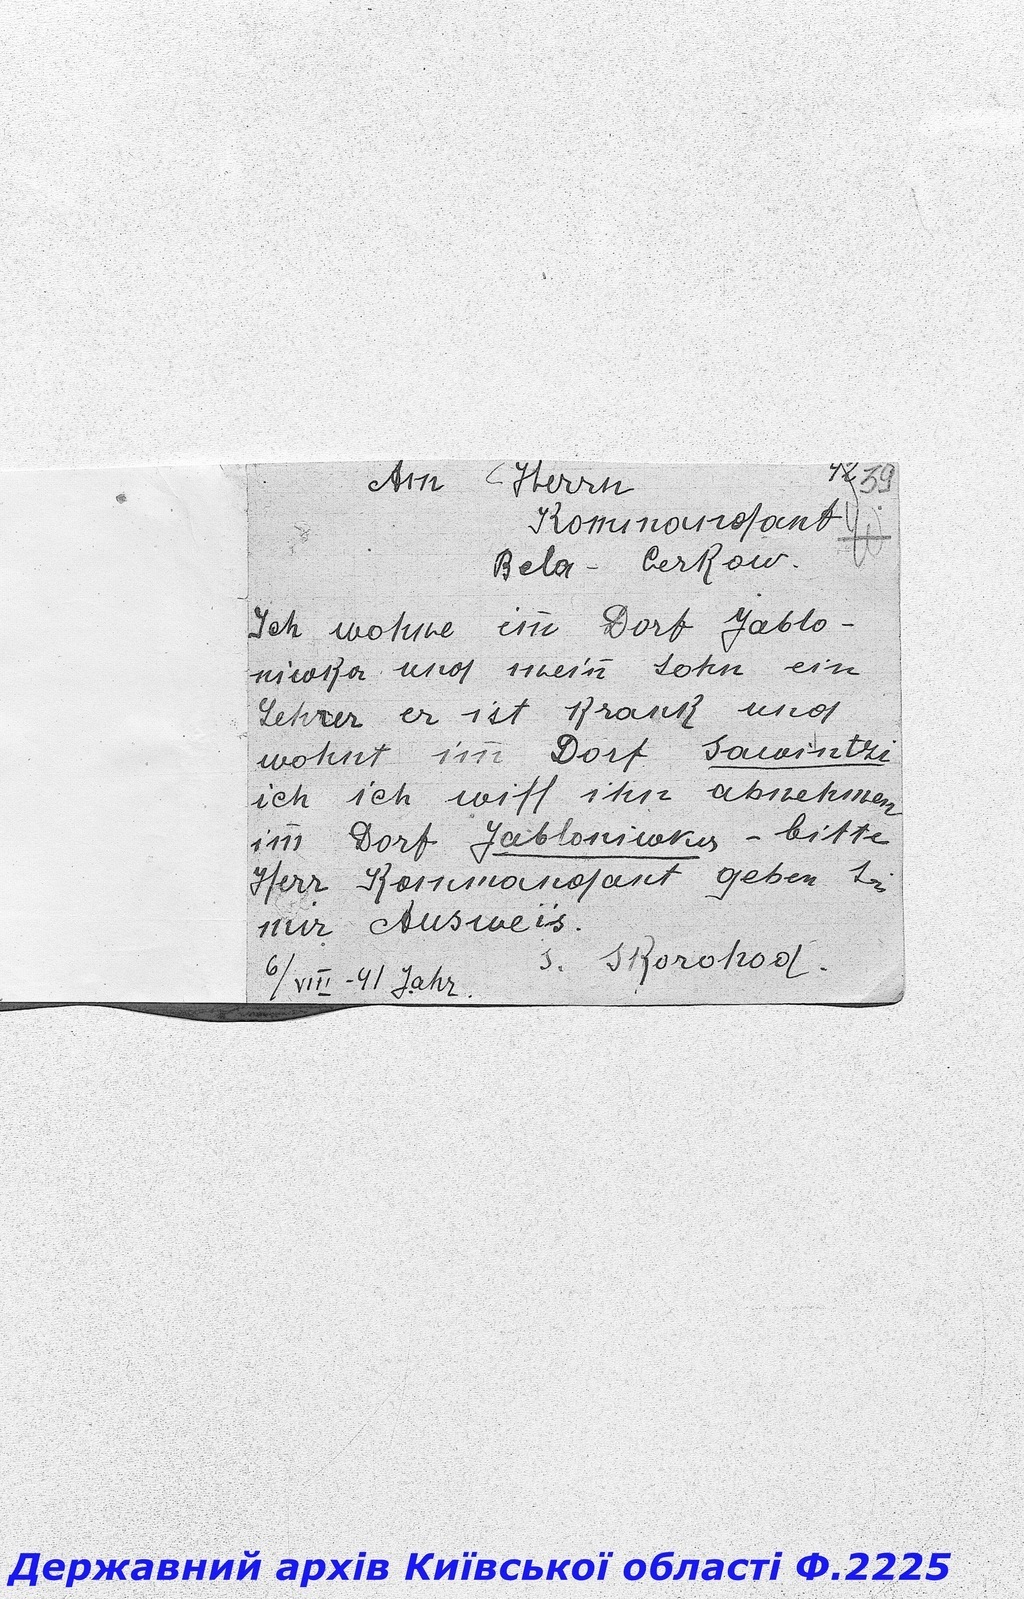 An Herrn 42 39
Kommandant
Bela - Cerkow.
Ich wohne im Dorf Jablo-
niwka und mein Sohn ein
Lehrer er ist krank und
wohnt im Dorf Sawintzi
ich ich will ihn abnehmen
im Dorf Jabloniwka - bitte
Herr Kommandant geben Si
mir Ausweis.
S. Skorohod.
6/VIII -41 Jahr.
Державний архів Київської області Ф.2225